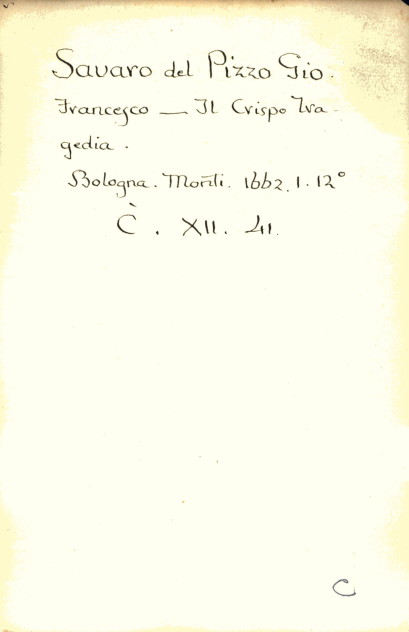 Savaro del Pizzo Gio.
Francesco — Il Crispo Tra-
gedia.
Bologna. Monti. 1662. 1. 12°
C. XII. 41.
C